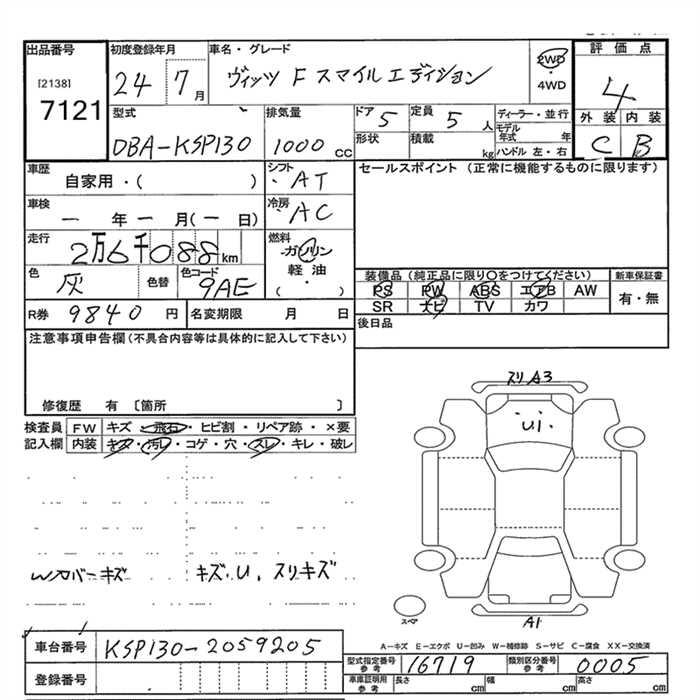 出品番号 初度登録年月 車名・グレード 2WD・4WD 評価点
[2138] 7121 24 7月 ヴィッツ F スマイルエディション 4
型式 排気量 ドア 定員 ディーラー・並行 外装 内装
DBA-KSP130 1000 CC 5 5人 モデル年式 年 C B
形状 積載 kg ハンドル 左・右
車歴 シフト セールスポイント (正常に機能するものに限ります)
自家用・( ) ・AT
車検 冷房
一年一月(一日) ・AC
走行 燃料
2万6千088km ガソリン・軽油・( )
色 色替 色コード 装備品 (純正品に限り○をつけてください) 新車保証書
灰 ・ 9AE PS PW ABS エアB AW 有・無
SR ナビ TV カワ
R券 9840円 名変期限 月 日 後日品
注意事項申告欄 (不具合内容等は具体的に記入して下さい)
修復歴 有 〔箇所 〕
検査員 FW キズ・飛石・ヒビ割・リペア跡・×要
記入欄 内装 キズ・汚レ・コゲ・穴・スレ・キレ・破レ
スリA3
U1.
Wカバーキズ キズ.U. スリキズ
スペア A1
A-キズ E-エクボ U-凹み W-補修跡 S-サビ C-腐食 XX-交換済
車台番号 KSP130-2059205
型式指定番号 参考 16719 類別区分番号 参考 0005
登録番号
車庫証明用 参考 長さ cm 幅 cm 高さ cm